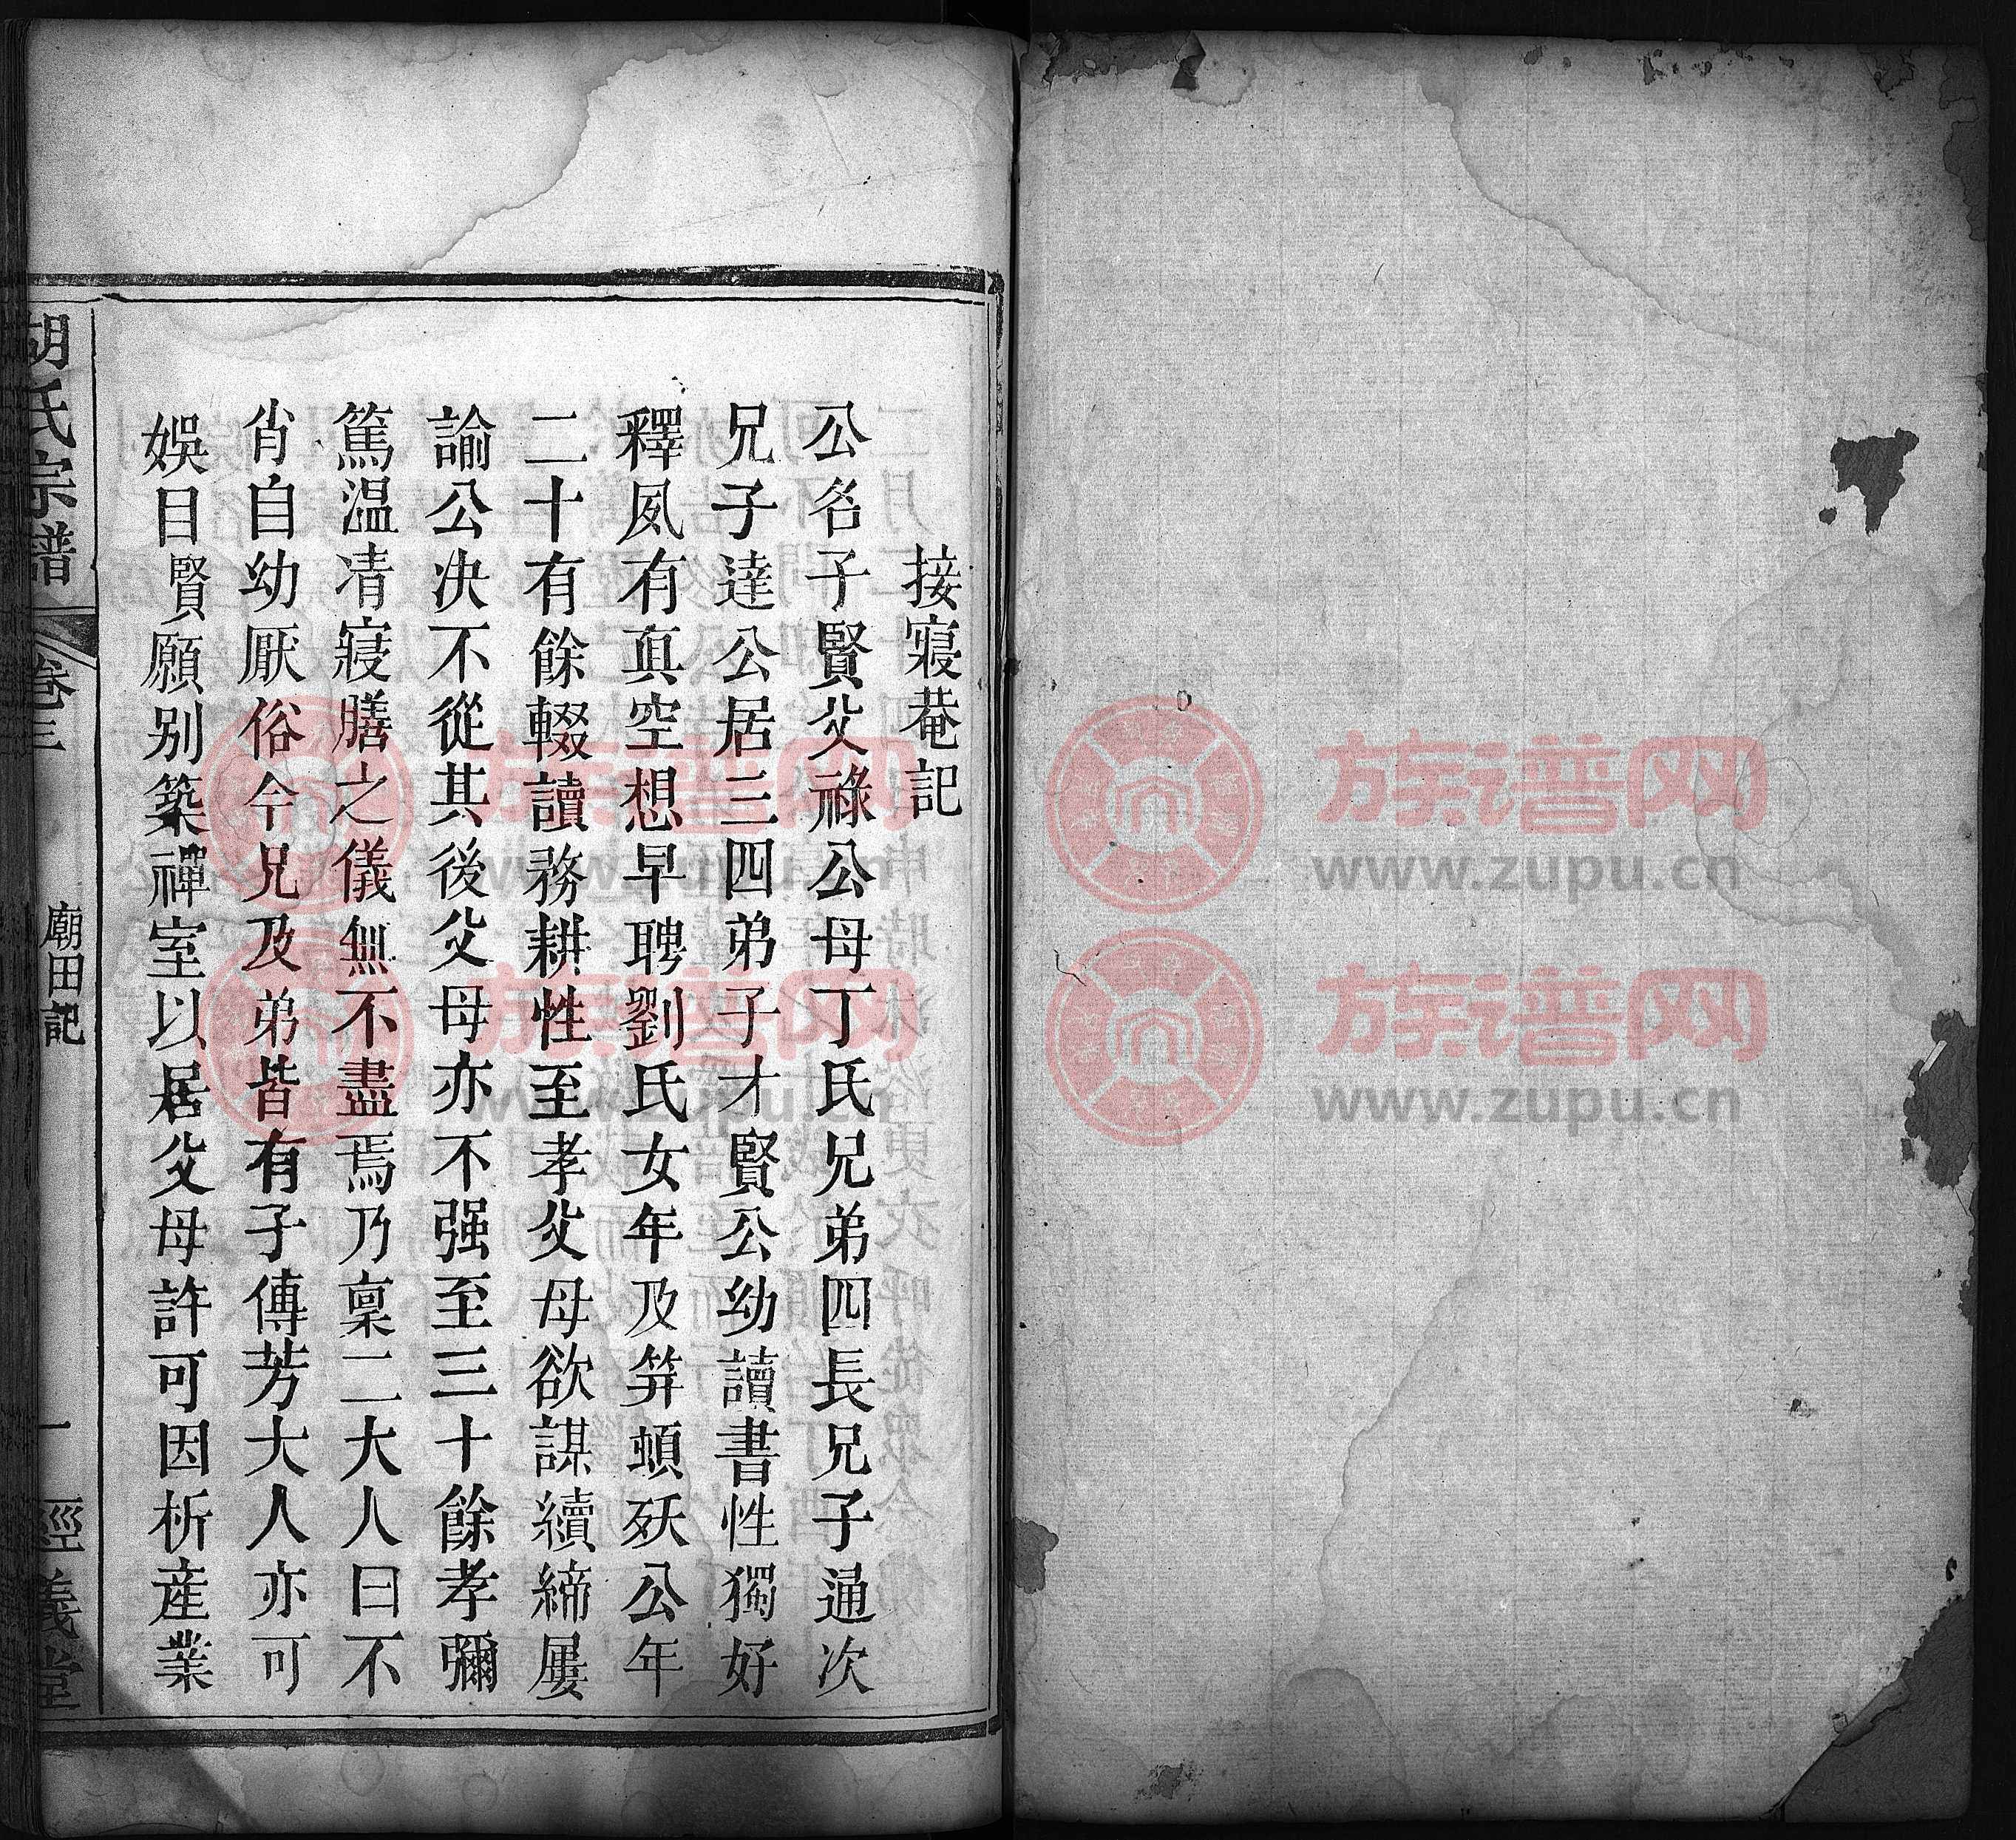 接寢菴記
公名子賢父祿公母丁氏兄弟四長兄子通次
兄子達公居三四弟子才賢公幼讀書性獨好
釋夙有眞空想早聘劉氏女年及笄頓殀公年
二十有餘輟讀務耕性至孝父母欲謀續締屢
諭公决不從其後父母亦不强至三十餘孝彌
篤温凊寢膳之儀無不盡焉乃稟二大人曰不
肖自幼厭俗今兄及弟皆有子傳芳大人亦可
娛目賢願别築禪室以居父母許可因析産業
胡氏宗譜
卷三
廟田記
一
經義堂
族谱网
www.zupu.cn
族谱网
www.zupu.cn
族谱网
www.zupu.cn
族谱网
www.zupu.cn